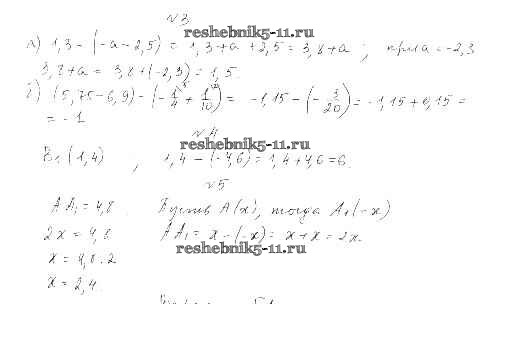 №3
reshebnik5-11.ru
а) 1,3 - (-a - 2,5) = 1,3 + a + 2,5 = 3,8 + a ; при a = -2,3
3,8 + a = 3,8 + (-2,3) = 1,5.
б) (5,75 - 6,9) - (-1/4 + 1/10) = -1,15 - (-3/20) = -1,15 + 0,15 =
= -1
№4
reshebnik5-11.ru
B1 (1,4) , 1,4 - (-4,6) = 1,4 + 4,6 = 6.
№5
AA1 = 4,8. Пусть A(x), тогда A1(-x)
2x = 4,8 AA1 = x - (-x) = x + x = 2x.
reshebnik5-11.ru
x = 4,8 : 2
x = 2,4.